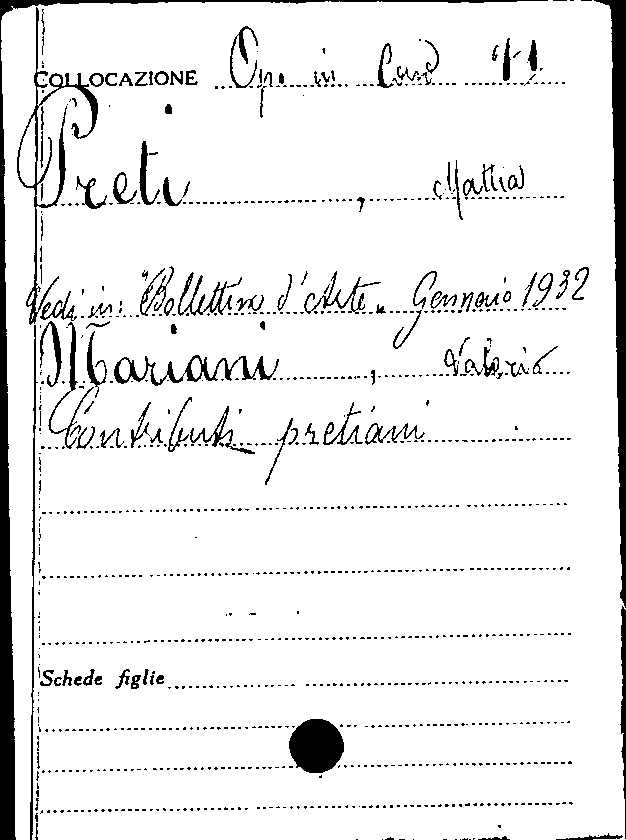 COLLOCAZIONE Op. in
Preti, Mattia
Vedi in: "Bollettino d'Arte" Gennaio 1932
Mariani, Valerio
Contributi pretiani
Schede figlie